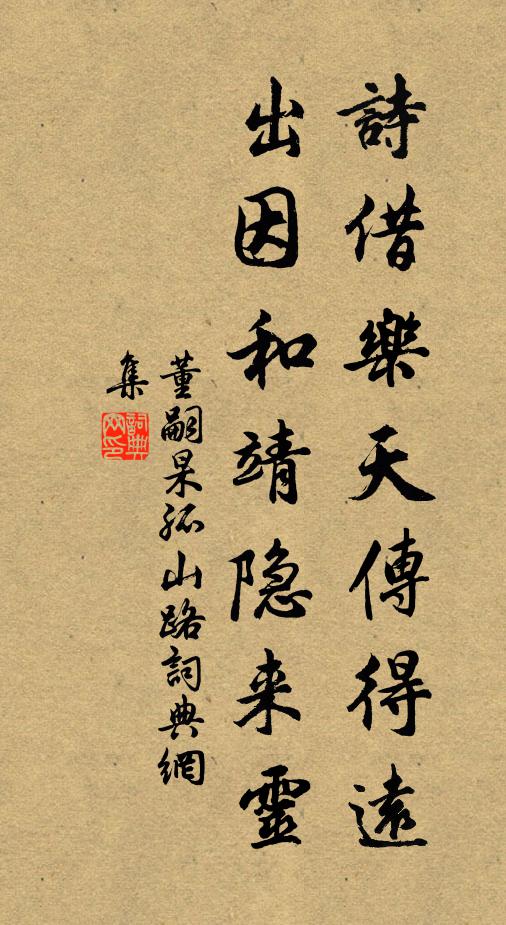 詩借樂天傳得遠
出因和靖隐来靈
董嗣杲孤山路詞典網
集
詞典
网印